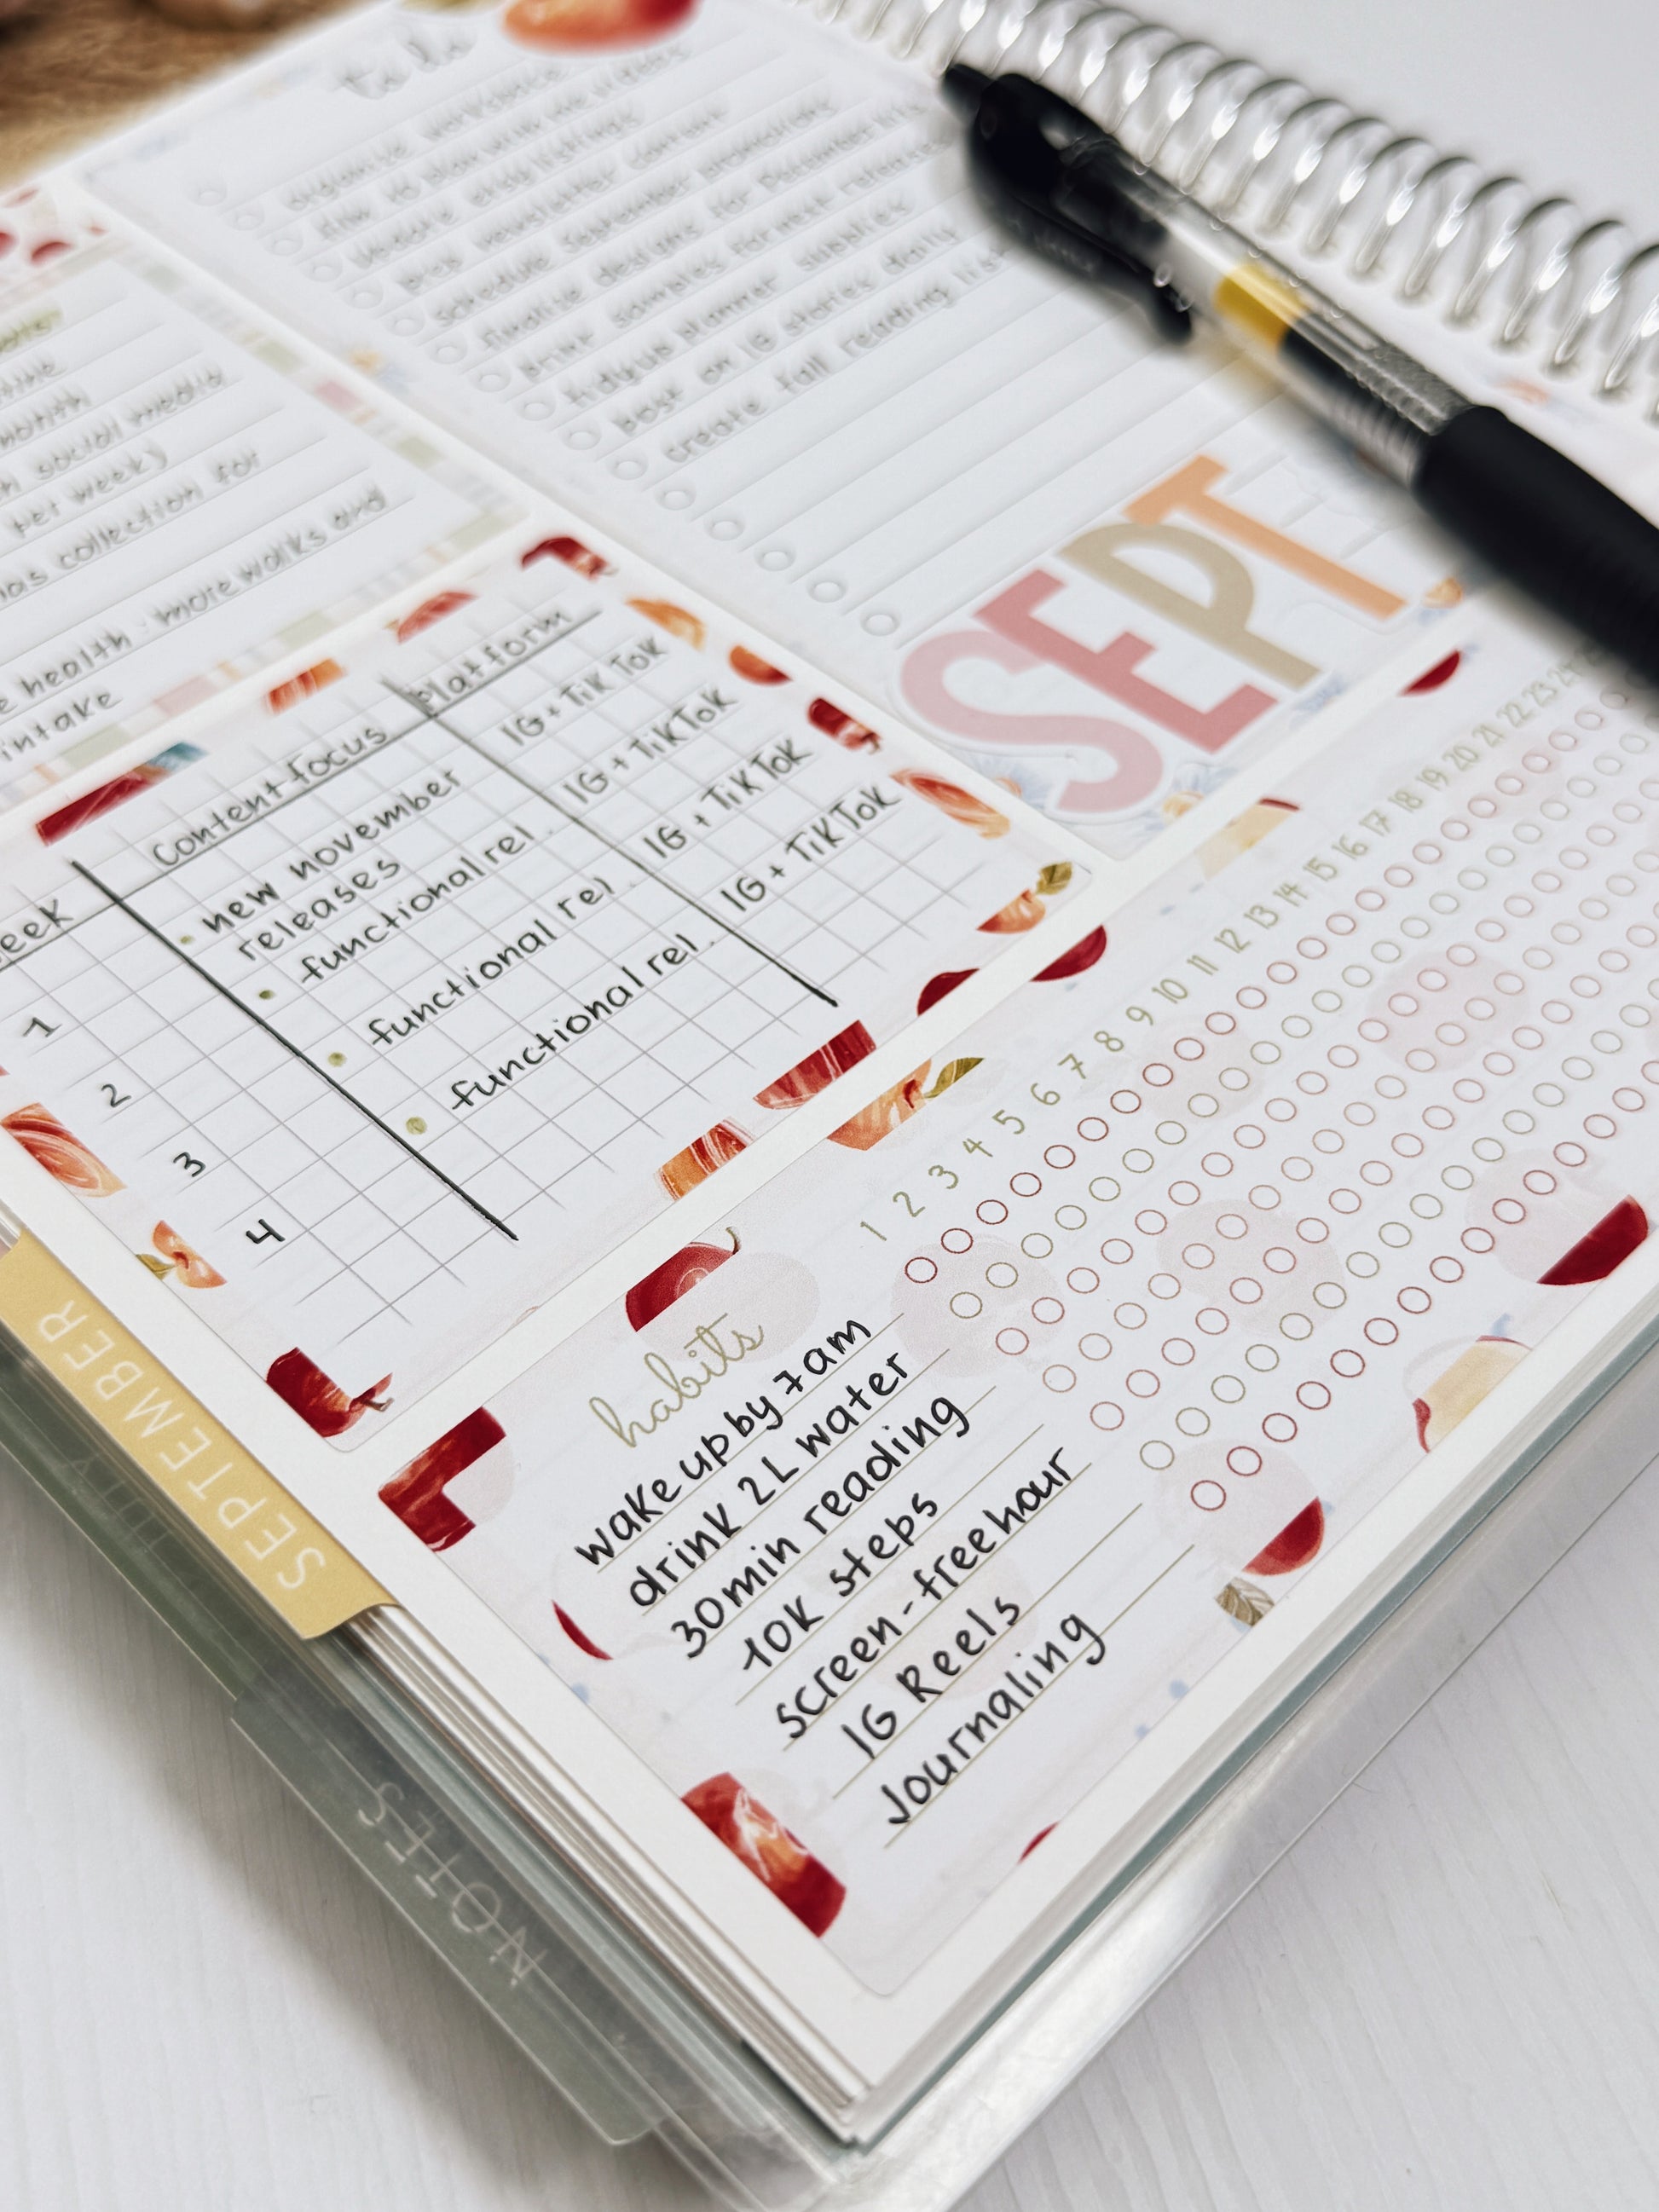 to do
organize workspace
update etsy listings
prep newsletter content
schedule September promotions
finalize designs for December
print samples for next release
tidy up planner supplies
post on IG stories daily
create fall reading list
SEPT
month
social media
per week)
collection for
health - more walks and
intake
Content focus Platform
1 new november releases IG + TikTok
2 functional rel. IG + TikTok
3 functional rel. IG + TikTok
4 functional rel. IG + TikTok
1 2 3 4 5 6 7 8 9 10 11 12 13 14 15 16 17 18 19 20 21 22 23
habits
wake up by 7am
drink 2L water
30min reading
10K steps
screen-free hour
IG Reels
Journaling
SEPTEMBER
NOTES